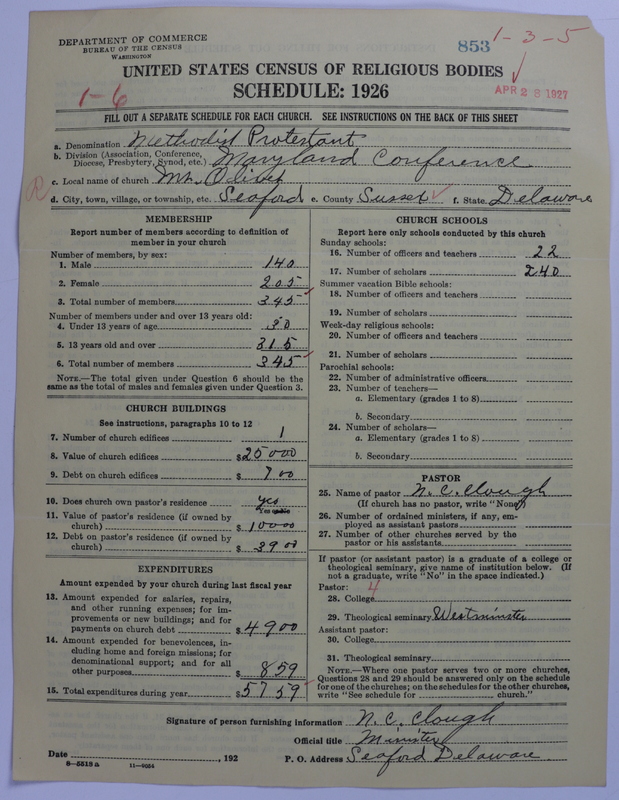 DEPARTMENT OF COMMERCE
BUREAU OF THE CENSUS
WASHINGTON
853
1-3-5
UNITED STATES CENSUS OF RELIGIOUS BODIES
SCHEDULE: 1926
APR 28 1927
1-6
FILL OUT A SEPARATE SCHEDULE FOR EACH CHURCH. SEE INSTRUCTIONS ON THE BACK OF THIS SHEET
a. Denomination Methodist Protestant
b. Division (Association, Conference, Diocese, Presbytery, Synod, etc.) Maryland Conference
c. Local name of church Mt. Olivet
R
d. City, town, village, or township, etc. Seaford e. County Sussex f. State Delaware
MEMBERSHIP
Report number of members according to definition of
member in your church
Number of members, by sex:
1. Male 140
2. Female 205
3. Total number of members 345
Number of members under and over 13 years old:
4. Under 13 years of age 30
5. 13 years old and over 315
6. Total number of members 345
NOTE.—The total given under Question 6 should be the
same as the total of males and females given under Question 3.
CHURCH BUILDINGS
See instructions, paragraphs 10 to 12
7. Number of church edifices 1
8. Value of church edifices $25000
9. Debt on church edifices $700
10. Does church own pastor's residence yes
Yes or No
11. Value of pastor's residence (if owned by
church) $10000
12. Debt on pastor's residence (if owned by
church) $3900
EXPENDITURES
Amount expended by your church during last fiscal year
13. Amount expended for salaries, repairs,
and other running expenses; for im-
provements or new buildings; and for
payments on church debt $4900
14. Amount expended for benevolences, in-
cluding home and foreign missions; for
denominational support; and for all
other purposes $859
15. Total expenditures during year $5759
CHURCH SCHOOLS
Report here only schools conducted by this church
Sunday schools:
16. Number of officers and teachers 22
17. Number of scholars 240
Summer vacation Bible schools:
18. Number of officers and teachers
19. Number of scholars
Week-day religious schools:
20. Number of officers and teachers
21. Number of scholars
Parochial schools:
22. Number of administrative officers
23. Number of teachers—
a. Elementary (grades 1 to 8)
b. Secondary
24. Number of scholars—
a. Elementary (grades 1 to 8)
b. Secondary
PASTOR
25. Name of pastor N. C. Clough
(If church has no pastor, write "None")
26. Number of ordained ministers, if any, em-
ployed as assistant pastors
27. Number of other churches served by the
pastor or his assistants
If pastor (or assistant pastor) is a graduate of a college or
theological seminary, give name of institution below. (If
not a graduate, write "No" in the space indicated.)
Pastor: 4
28. College
29. Theological seminary Westminster
Assistant pastor:
30. College
31. Theological seminary
NOTE.—Where one pastor serves two or more churches,
Questions 28 and 29 should be answered only on the schedule
for one of the churches; on the schedules for the other churches,
write "See schedule for church."
Signature of person furnishing information N. C. Clough
Official title Minister
Date , 192 P. O. Address Seaford Delaware
8-5513a 11-9034